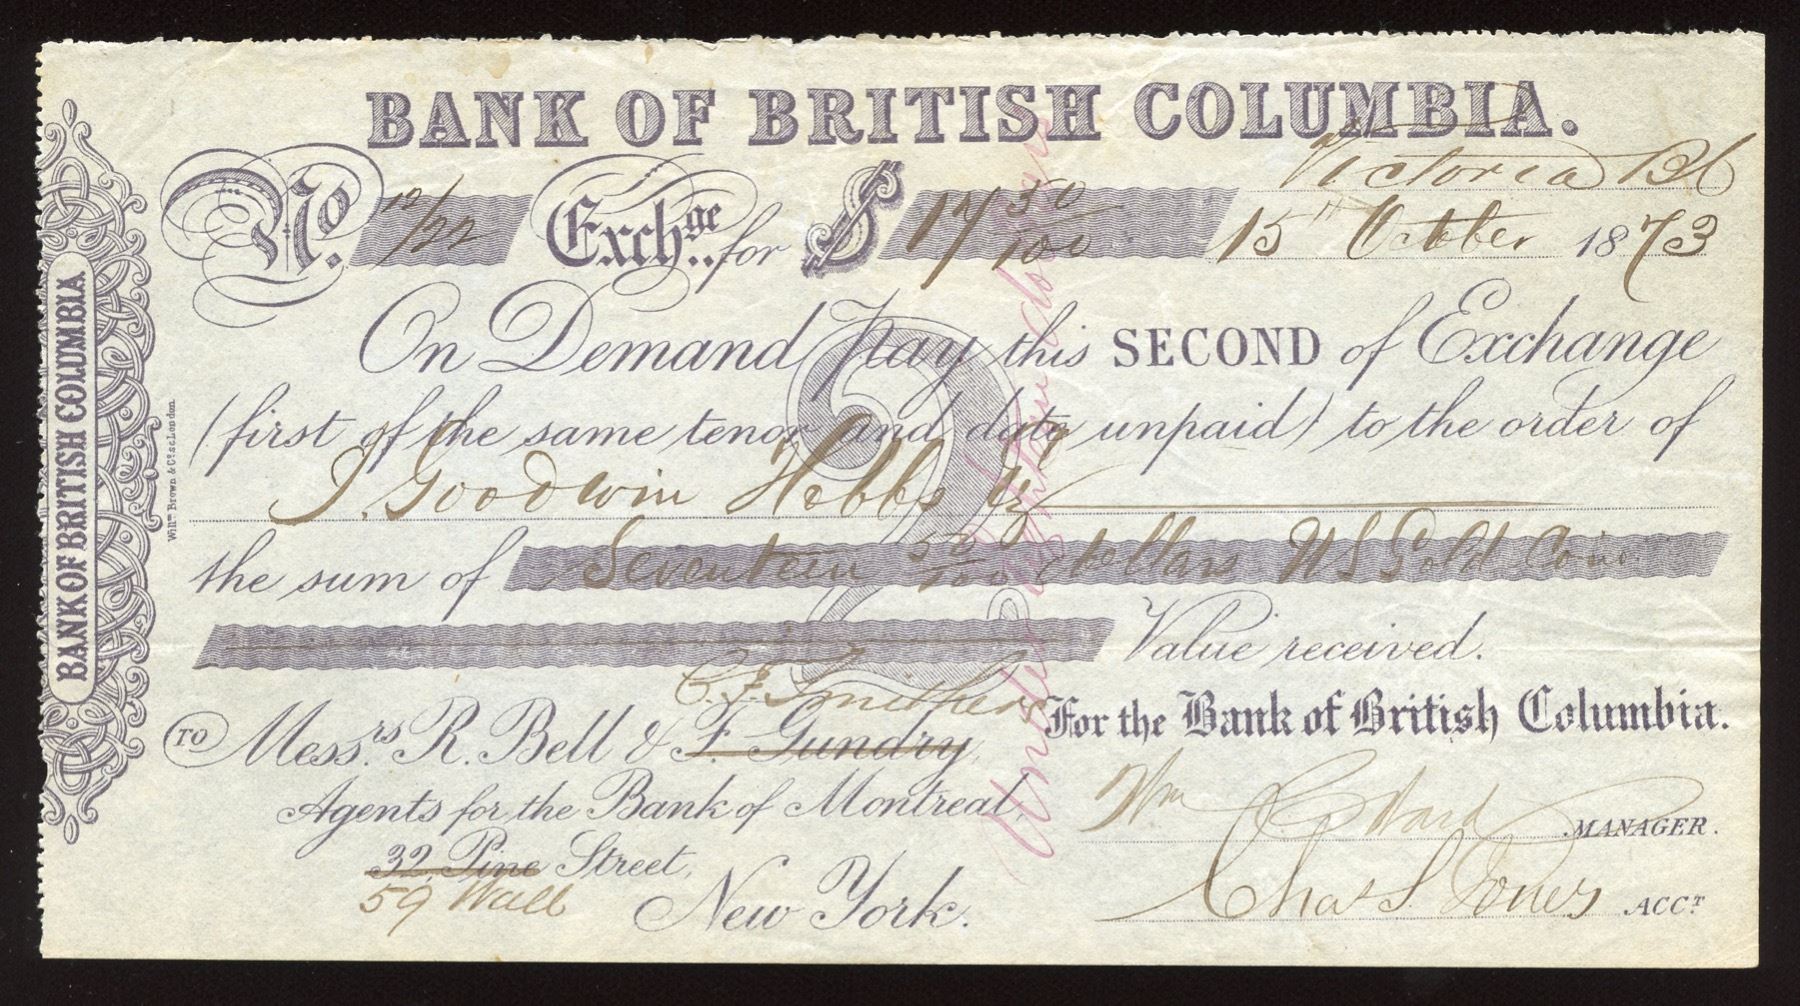 BANK OF BRITISH COLUMBIA.
Victoria BC
No. 12/22 Exchge. for $ 17 50/100 15th October 1873
On Demand pay this SECOND of Exchange
(first of the same tenor and date unpaid) to the order of
J. Goodwin Hobbs Jr
the sum of Seventeen 50/100 dollars US Gold Coin
Value received.
C. F. Smithers
For the Bank of British Columbia.
TO Messrs. R. Bell & F. Gundry,
Agents for the Bank of Montreal,
Wm C Ward MANAGER.
32, Pine Street,
59 Wall
New York.
Chas S Jones ACCT.
Under Eighteen dollars
BANK OF BRITISH COLUMBIA
Willm Brown & Co. Sc. London.
2